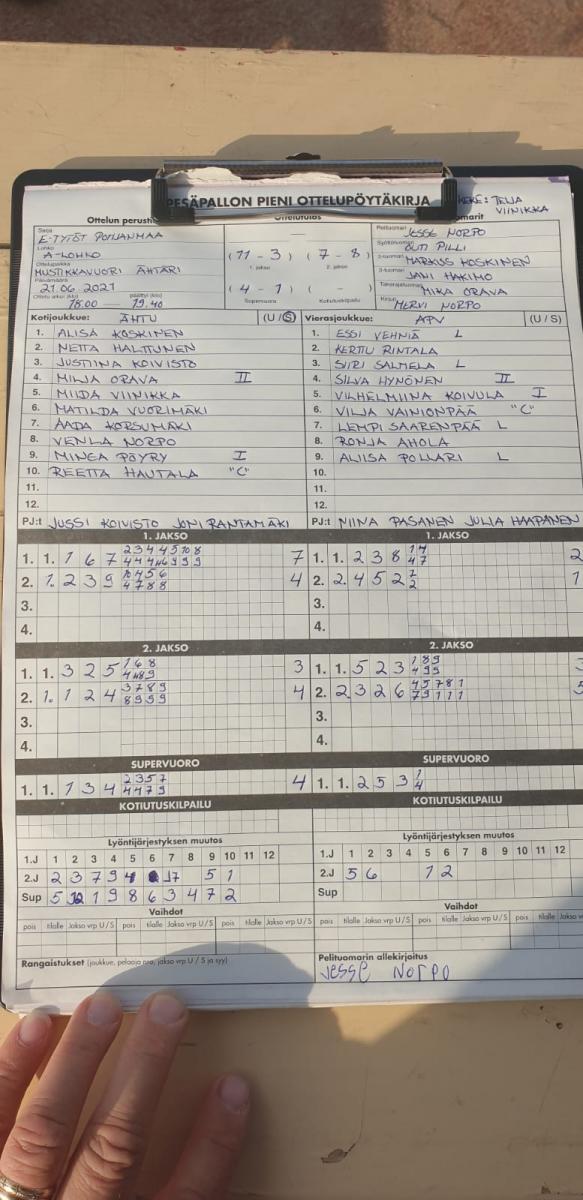 PESÄPALLON PIENI OTTELUPÖYTÄKIRJA
TEIJA
VIINIKKA
Ottelun
Sarja
E-TYTÖT POHJANMAA
Lohko
A-LOHKO
Ottelupaikka
MUSTIKKAVUORI ÄHTÄRI
Päivämäärä
21.06.2021
18.00 19.40
Ottelutulos
(11 - 3) (7 - 8)
1. jakso 2. jakso
(4 - 1) ( - )
Supervuoro Kotiutuskilpailu
Pelituomari JESSE NORPO
OUTI PILLI
2-tuomari MARKUS KOSKINEN
3-tuomari JANI HAKIMO
Takarajatuomari MIKA ORAVA
Kirjuri MERVI NORPO
Kotijoukkue: ÄHTU (U / S)
1. ALISA KOSKINEN
2. NETTA HALTTUNEN
3. JUSTIINA KOIVISTO
4. MILJA ORAVA II
5. MIIDA VIINIKKA
6. MATILDA VUORIMÄKI
7. AADA KORSUMÄKI
8. VENLA NORPO
9. MINEA PÖYRY I
10. REETTA HAUTALA "C"
11.
12.
PJ:t JUSSI KOIVISTO JONI RANTAMÄKI
Vierasjoukkue: APV (U / S)
1. ESSI VEHNIÄ L
2. KERTTU RINTALA
3. SIIRI SALMELA L
4. SILVA HYNÖNEN II
5. VILHELMIINA KOIVULA I
6. VILJA VAINIONPÄÄ "C"
7. LEMPI SAARENPÄÄ L
8. RONJA AHOLA
9. ALIISA POLLARI L
10.
11.
12.
PJ:t NIINA PASANEN JULIA HAAPANEN
1. JAKSO
1. 1. 1 6 7 7
2. 1. 2 3 9 4
3.
4.
1. JAKSO
1. 1. 2 3 8 2
2. 2. 4 5 2 1
3.
4.
2. JAKSO
1. 1. 3 2 5 3
2. 1. 1 2 4 4
3.
4.
2. JAKSO
1. 1. 5 2 3
2. 2 3 2 6
3.
4.
SUPERVUORO
1. 1. 1 3 4 4
SUPERVUORO
1. 1. 2 5 3
KOTIUTUSKILPAILU
KOTIUTUSKILPAILU
Lyöntijärjestyksen muutos
1.J 1 2 3 4 5 6 7 8 9 10 11 12
2.J 2 3 7 9 4 17 5 1
Sup 5 1 9 8 6 3 4 7 2
Lyöntijärjestyksen muutos
1.J 1 2 3 4 5 6 7 8 9 10 11 12
2.J 5 6 1 2
Sup
Vaihdot
pois tilalle Jakso vrp U/S pois tilalle Jakso vrp U/S pois tilalle Jakso vrp U/S
Vaihdot
pois tilalle Jakso vrp U/S pois tilalle Jakso vrp U/S pois tilalle Jakso
Rangaistukset (joukkue, pelaaja nro, jakso vrp U / S ja syy)
Pelituomarin allekirjoitus
Jesse Norpo